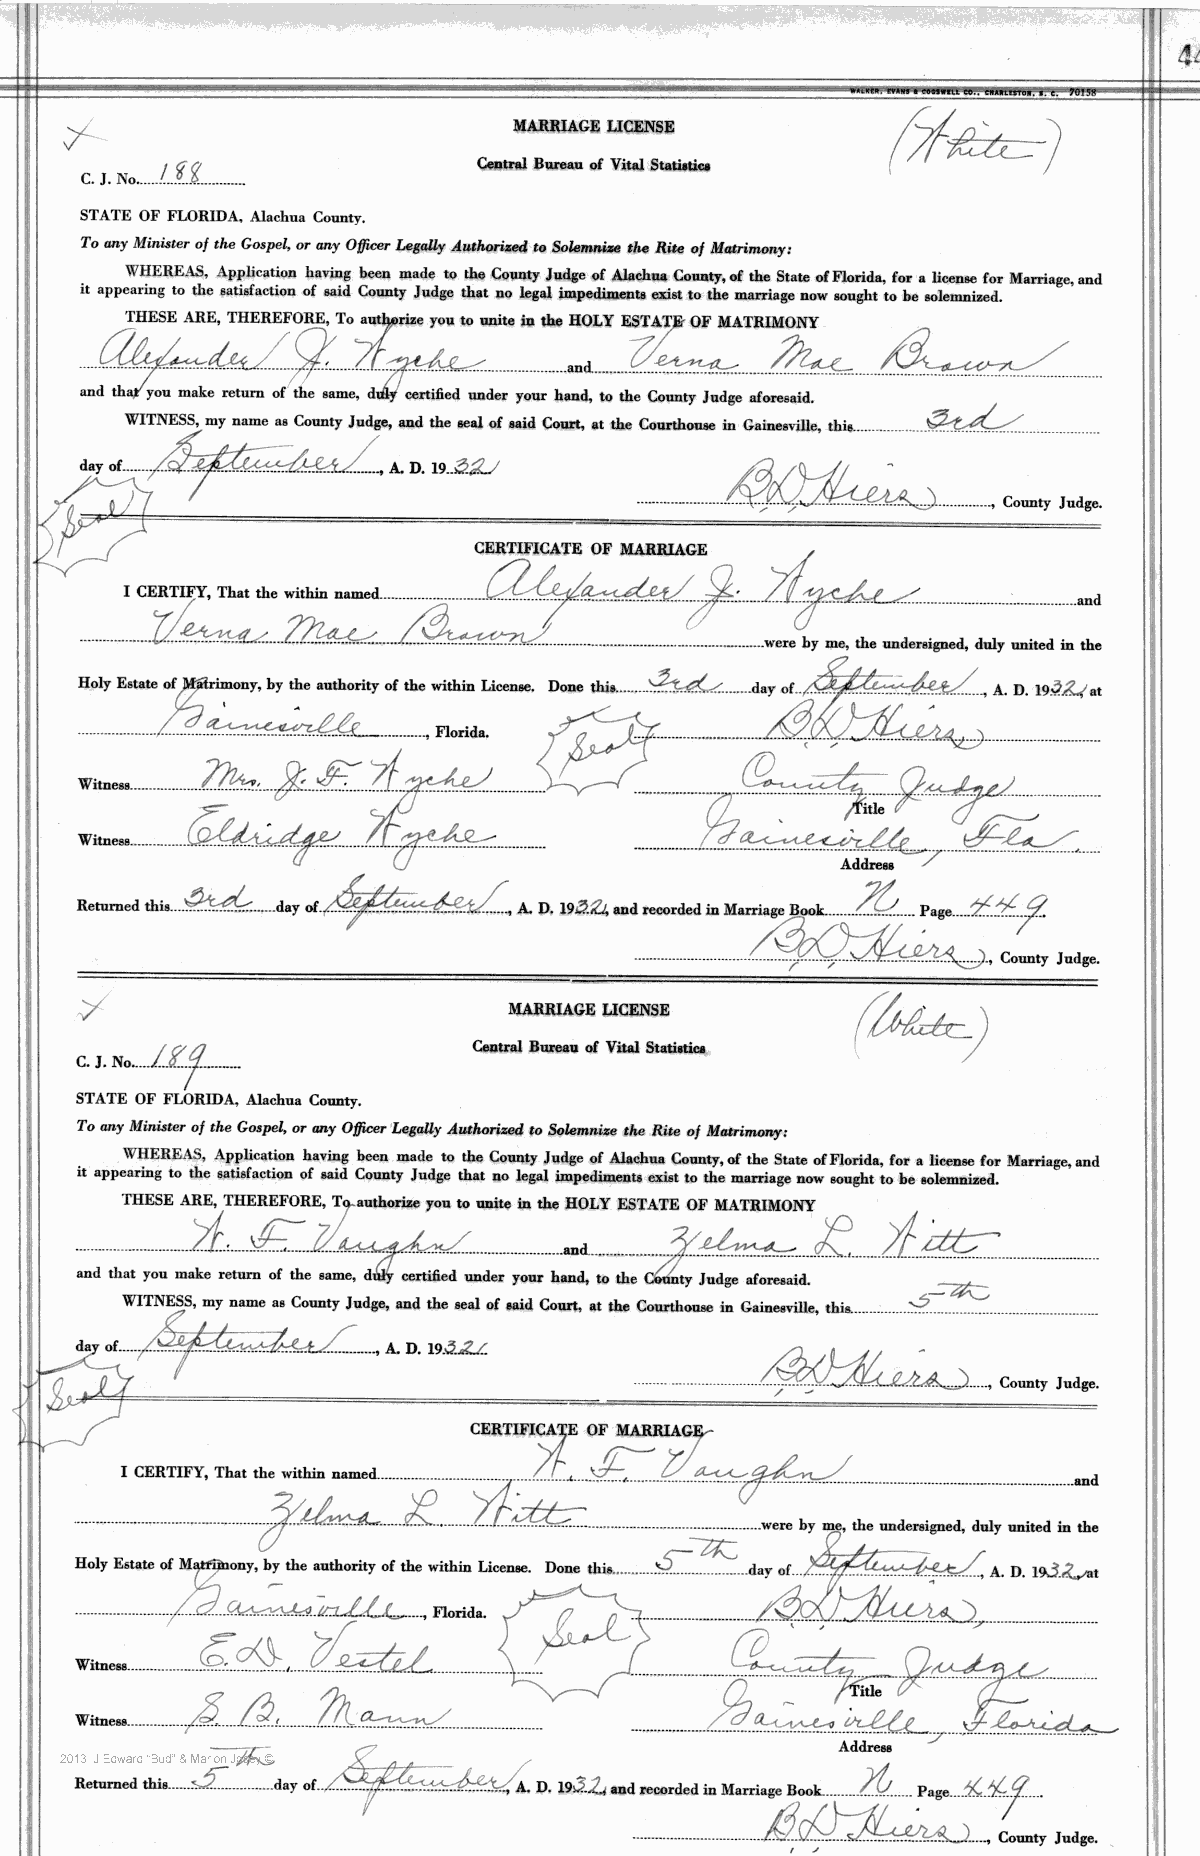 44
WALKER, EVANS & COGSWELL CO., CHARLESTON, S. C. 70158
MARRIAGE LICENSE
(White)
Central Bureau of Vital Statistics
C. J. No. 188
STATE OF FLORIDA, Alachua County.
To any Minister of the Gospel, or any Officer Legally Authorized to Solemnize the Rite of Matrimony:
WHEREAS, Application having been made to the County Judge of Alachua County, of the State of Florida, for a license for Marriage, and
it appearing to the satisfaction of said County Judge that no legal impediments exist to the marriage now sought to be solemnized.
THESE ARE, THEREFORE, To authorize you to unite in the HOLY ESTATE OF MATRIMONY
Alexander J. Wyche and Verna Mae Brown
and that you make return of the same, duly certified under your hand, to the County Judge aforesaid.
WITNESS, my name as County Judge, and the seal of said Court, at the Courthouse in Gainesville, this 3rd
day of September, A. D. 1932
B.D. Hiers, County Judge.
Seal
CERTIFICATE OF MARRIAGE
I CERTIFY, That the within named Alexander J. Wyche and
Verna Mae Brown were by me, the undersigned, duly united in the
Holy Estate of Matrimony, by the authority of the within License. Done this 3rd day of September, A. D. 1932, at
Gainesville, Florida. Seal B.D. Hiers,
Witness Mrs. J. F. Wyche County Judge
Title
Witness Eldridge Wyche Gainesville, Fla.
Address
Returned this 3rd day of September, A. D. 1932, and recorded in Marriage Book N Page 449.
B.D. Hiers, County Judge.
MARRIAGE LICENSE
(White)
Central Bureau of Vital Statistics
C. J. No. 189
STATE OF FLORIDA, Alachua County.
To any Minister of the Gospel, or any Officer Legally Authorized to Solemnize the Rite of Matrimony:
WHEREAS, Application having been made to the County Judge of Alachua County, of the State of Florida, for a license for Marriage, and
it appearing to the satisfaction of said County Judge that no legal impediments exist to the marriage now sought to be solemnized.
THESE ARE, THEREFORE, To authorize you to unite in the HOLY ESTATE OF MATRIMONY
W. F. Vaughn and Zelma L. Witt
and that you make return of the same, duly certified under your hand, to the County Judge aforesaid.
WITNESS, my name as County Judge, and the seal of said Court, at the Courthouse in Gainesville, this 5th
day of September, A. D. 1932
B.D. Hiers, County Judge.
Seal
CERTIFICATE OF MARRIAGE
I CERTIFY, That the within named W. F. Vaughn and
Zelma L. Witt were by me, the undersigned, duly united in the
Holy Estate of Matrimony, by the authority of the within License. Done this 5th day of September, A. D. 1932, at
Gainesville, Florida. Seal B.D. Hiers,
Witness E. D. Vestel County Judge
Title
Witness S. B. Mann Gainesville, Florida
Address
2013 J Edward "Bud" & Marion ©
Returned this 5th day of September, A. D. 1932, and recorded in Marriage Book N Page 449.
B.D. Hiers, County Judge.